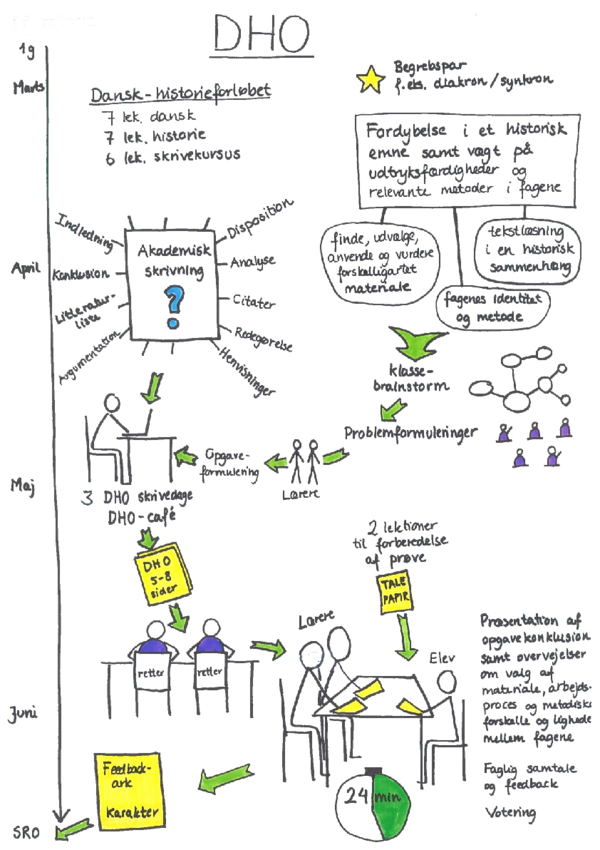 DHO
1g
Marts
April
Maj
Juni
SRO
Dansk-historieforløbet
7 lek. dansk
7 lek. historie
6 lek. skrivekursus
Begrebspar
f.eks. diakron/synkron
Fordybelse i et historisk
emne samt vægt på
udtryksfærdigheder og
relevante metoder i fagene
finde, udvælge,
anvende og vurdere
forskelligartet
materiale
tekstlæsning
i en historisk
sammenhæng
fagenes identitet
og metode
Akademisk
skrivning
?
Indledning
Konklusion
Litteratur-
liste
Argumentation
Disposition
Analyse
Citater
Redegørelse
Henvisninger
klasse-
brainstorm
Problemformuleringer
Lærere
Opgave-
formulering
3 DHO skrivedage
DHO-café
DHO
5-8
sider
retter
retter
2 lektioner
til forberedelse
af prøve
TALE
PAPIR
Lærere
Elev
Præsentation af
opgavekonklusion
samt overvejelser
om valg af
materiale, arbejds-
proces og metodiske
forskelle og ligheder
mellem fagene
Faglig samtale
og feedback
Votering
24 min
Feedback-
ark
Karakter